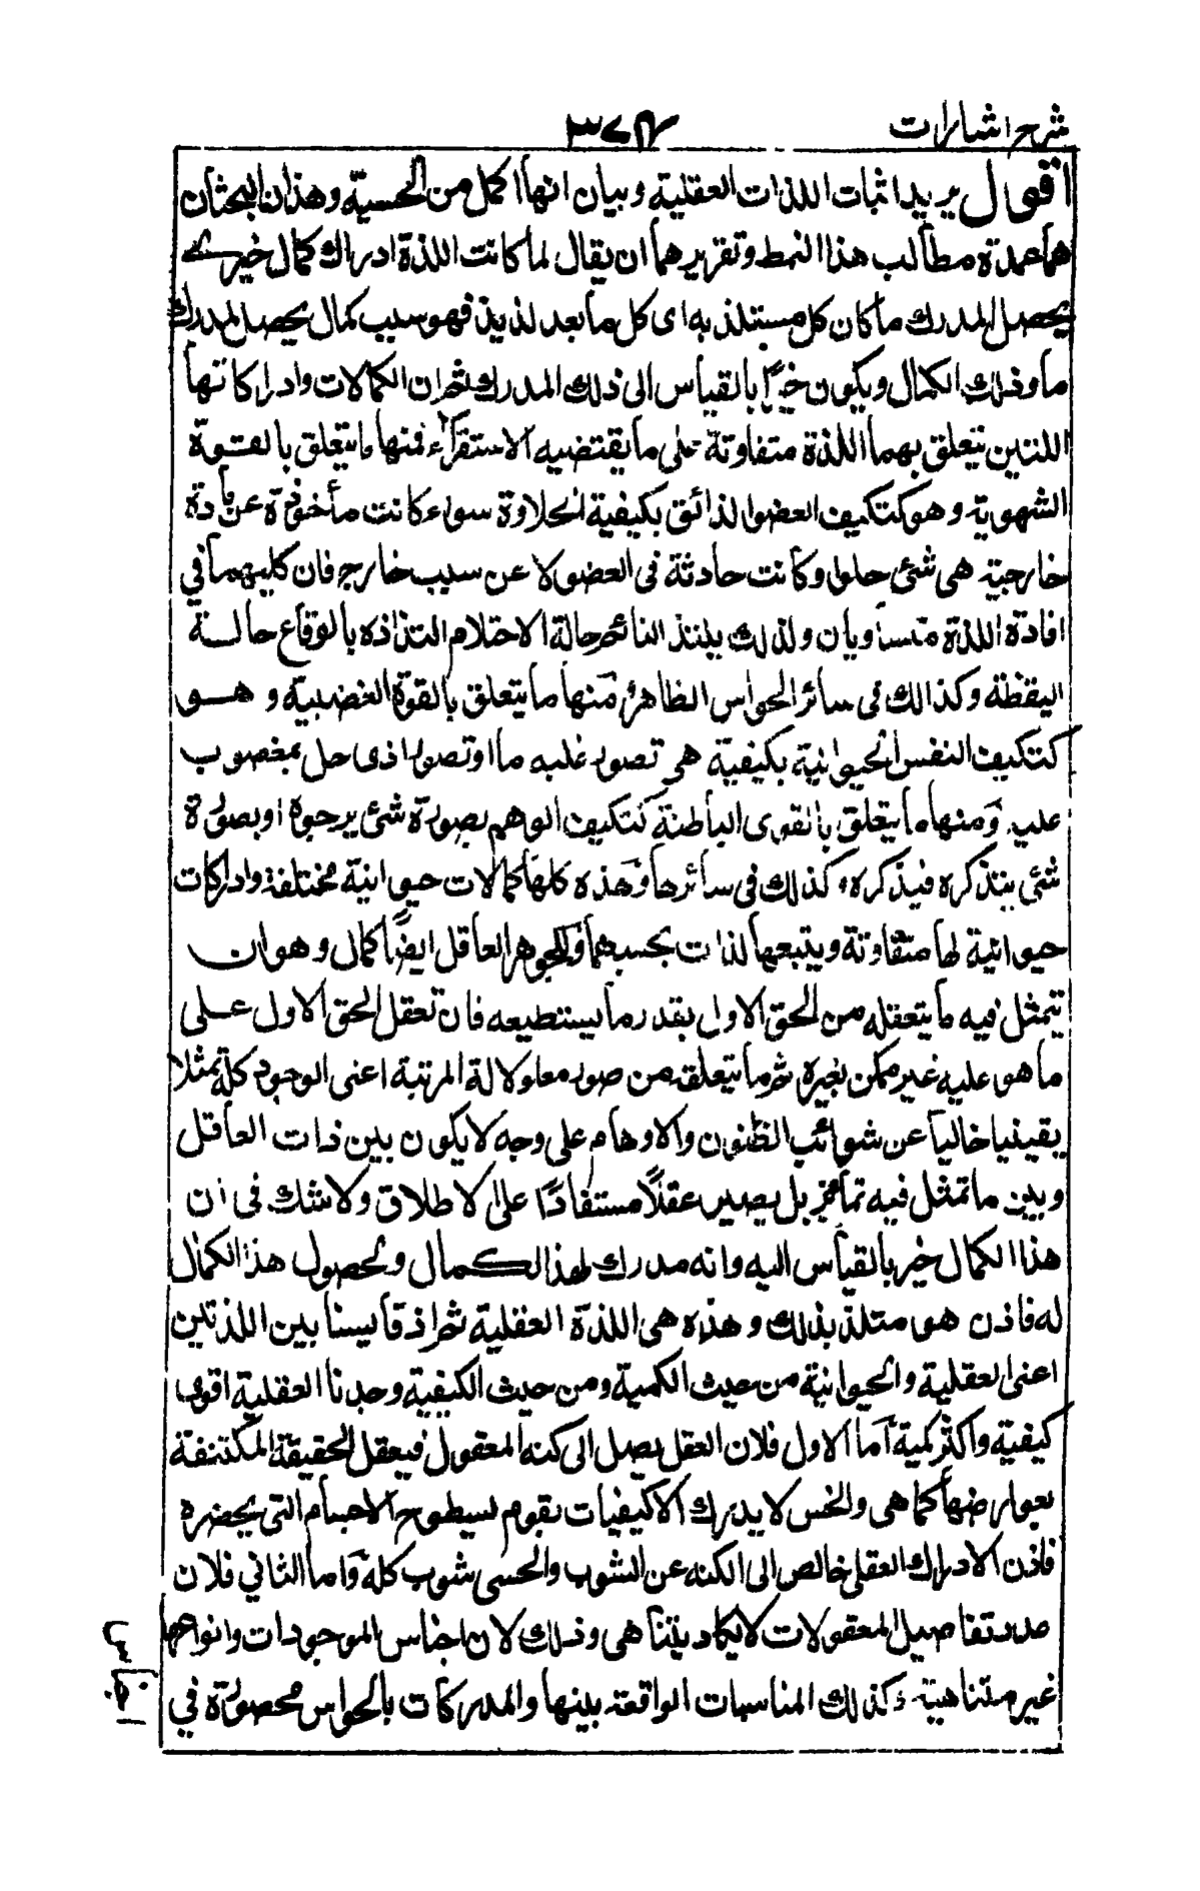 شرح اشارات
اقول يريد اثبات اللذات العقلية وبيان انها اكمل من الحسية وهذان البحثان
هما عمدة مطالب هذا النمط وتقريرهما ان يقال لما كانت اللذة ادراك كمال خيرى
يحصل لمدرك ما كان كل مستلذ به اى كل ما يعد لذيذ فهو سبب كمال يحصل لمدرك
ما وذلك الكمال ويكون خيرًا بالقياس الى ذلك المدرك ثم ان الكمالات وادراكاتها
اللتين يتعلق بهما اللذة متفاوتة على ما يقتضيه الاستقراء فمنها ما يتعلق بالقوة
الشهوية وهو كتكيف العضو الذائق بكيفية الحلاوة سواء كانت مأخوذة عن مادة
خارجية هى شئ حلو او كانت حادثة فى العضو لا عن سبب خارج فان كليهما في
افادة اللذة متساويان ولذلك يلتذ النائم حالة الاحتلام التذاذه بالوقاع حالة
اليقظة وكذالك فى سائر الحواس الظاهرة ومنها ما يتعلق بالقوة الغضبية وهو
كتكيف النفس الحيوانية بكيفية هى تصور غلبه ما او تصور اذى حل بمغصوب
عليه ومنها ما يتعلق بالقوى الباطنة كتكيف الوهم بصورة شئ يرجوه او بصورة
شئ يتذكره فيذكره وكذلك فى سائرها وهذه كلها كمالات حيوانية مختلفة وادراكات
حيوانية لها متفاوتة ويتبعها لذات بحسبهما وللجوهر العاقل ايضًا كمال وهو ان
يتمثل فيه ما يتعقله من الحق الاول بقدر ما يستطيعه فان تعقل الحق الاول على
ما هو عليه غير ممكن لغيره ثم ما يتعلق من صور معلولاته المرتبة اعنى الوجود كله تمثلا
يقينيا خاليا عن شوائب الظنون والاوهام على وجه لا يكون بين ذات العاقل
وبين ما تمثل فيه تمايز بل يصير عقلًا مستفادًا على الاطلاق ولا شك فى ان
هذا الكمال خير بالقياس اليه وانه مدرك لهذا الكمال ولحصول هذا الكمال
له فاذن هو متلذ بذلك وهذه هى اللذة العقلية ثم اذ قايسنا بين اللذتين
اعنى العقلية والحيوانية من حيث الكمية ومن حيث الكيفية وجدنا العقلية اقوى
كيفية واكثر كمية اما الاول فلان العقل يصل الى كنه المعقول فيعقل الحقيقة المكتنفة
بعوارضها كما هى والحس لا يدرك الا كيفيات تقوم بسطوح الاجسام التى يحضره
فاذن الادراك العقلى خالص الى الكنه عن الشوب والحسى شوب كله واما الثاني فلان
عدد تفاصيل المعقولات لا يكاد يتناهى وذلك لان اجناس الموجودات وانواعها
غير متناهية وكذلك المناسبات الواقعة بينها والمدركات بالحواس محصورة في